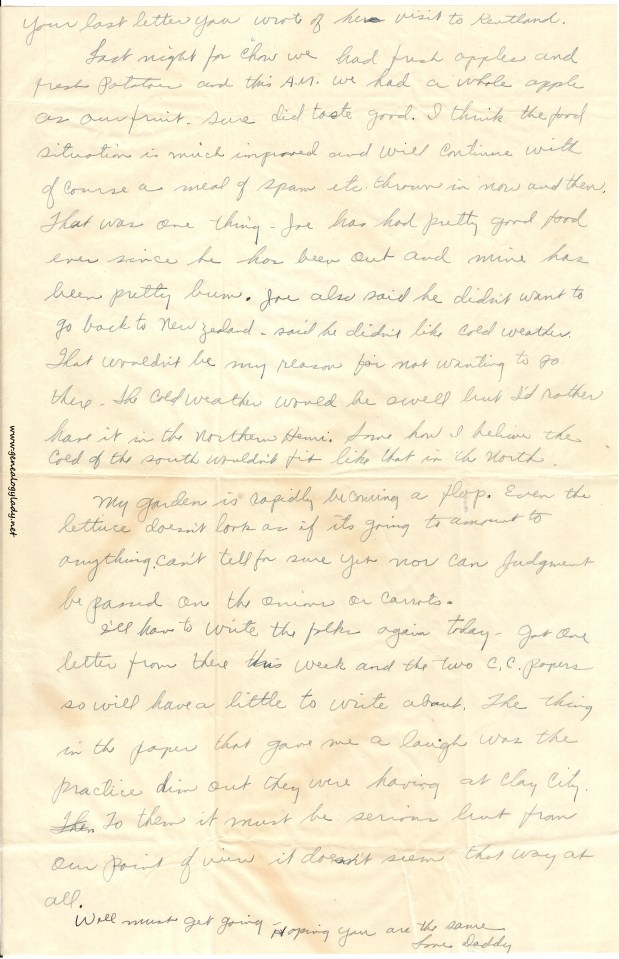 Your last letter you wrote of her visit to Kentland.
Last night for "chow we had fresh apples and
fresh potatoes and this A.M. we had a whole apple
as our fruit. Sure did taste good. I think the food
situation is much improved and will continue with
of course a meal of spam etc. thrown in now and then.
That was one thing - Joe has had pretty good food
ever since he has been out and mine has
been pretty bum. Joe also said he didn't want to
go back to New Zealand - said he didn't like cold weather.
That wouldn't be my reason for not wanting to go
there - The cold weather would be swell but I'd rather
have it in the Northern Hemi. Some how I believe the
cold of the south wouldn't fit like that in the North.
My garden is rapidly becoming a flop. Even the
lettuce doesn't look as if its going to amount to
anything. can't tell for sure yet nor can judgment
be passed on the onions or carrots.
I'll have to write the folks again today - Got one
letter from there this week and the two C.C. papers
so will have a little to write about. The thing
in the paper that gave me a laugh was the
practice dim out they were having at Clay City.
Then To them it must be serious but from
our point of view it doesn't seem that way at
all.
Well must get going - Hoping you are the same
Love Daddy
www.genealogylady.net